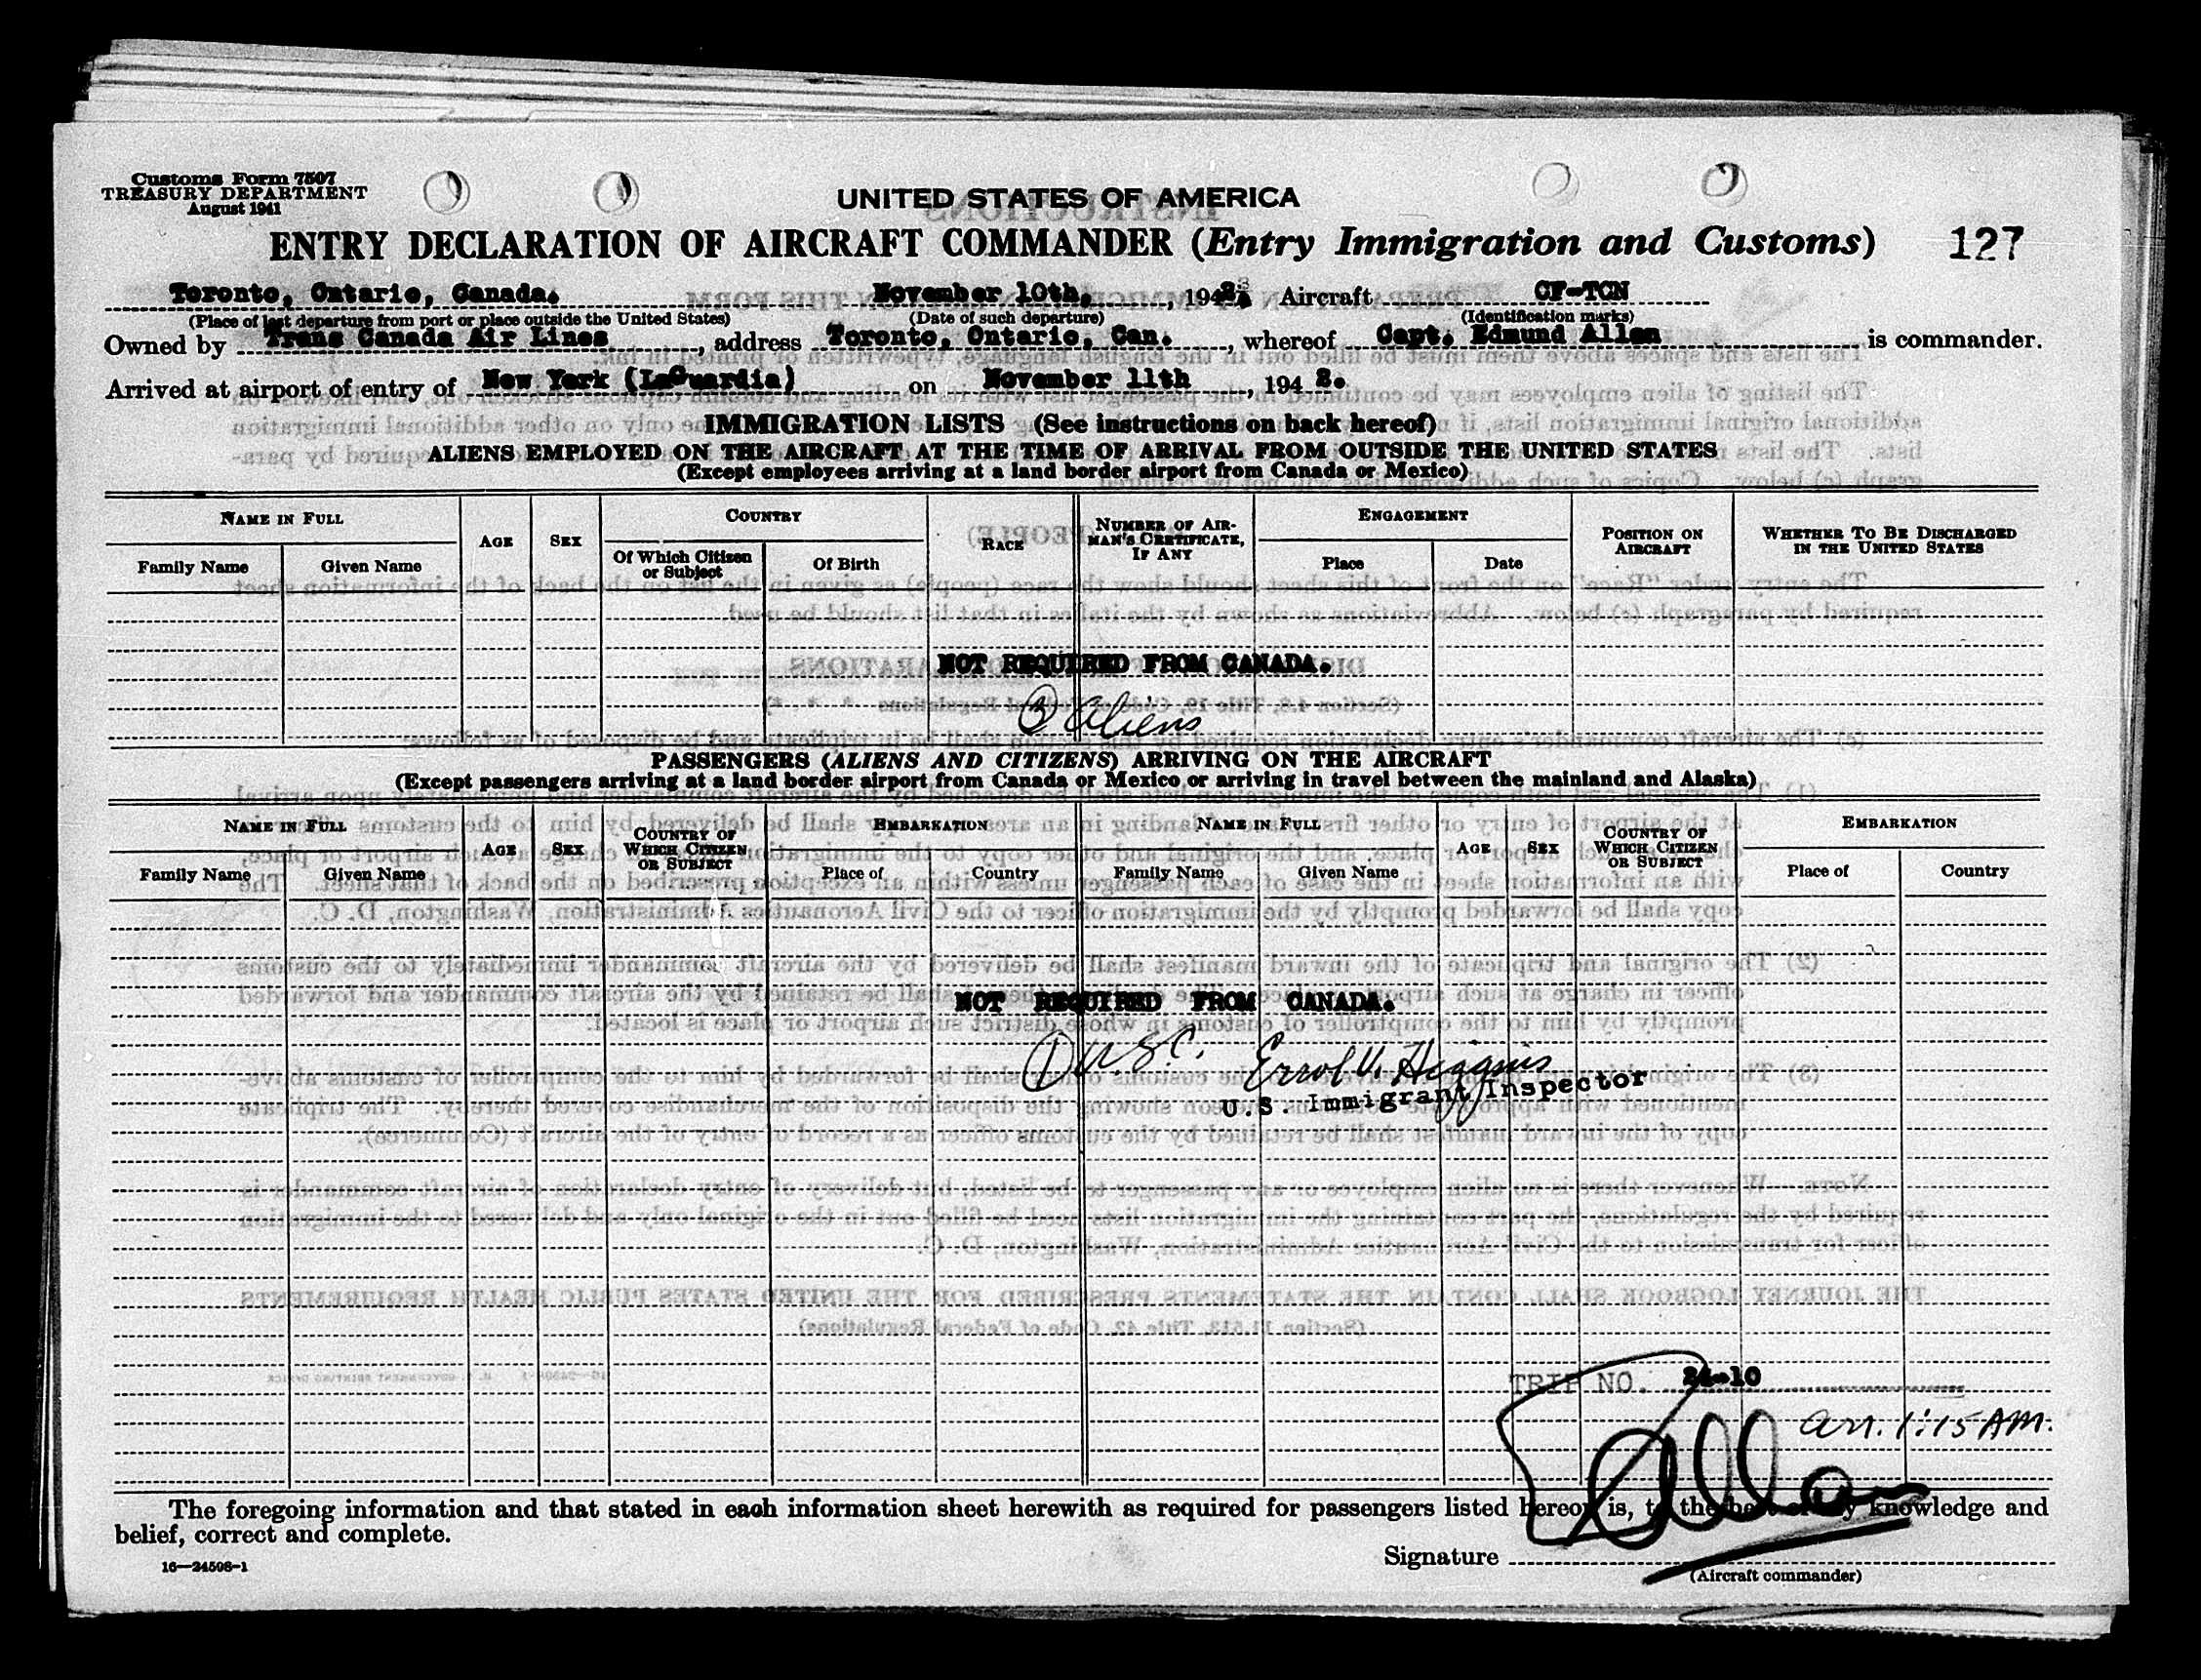 Customs Form 7507
TREASURY DEPARTMENT
August 1941
UNITED STATES OF AMERICA
ENTRY DECLARATION OF AIRCRAFT COMMANDER (Entry Immigration and Customs) 127
Toronto, Ontario, Canada. November 10th, , 1942 Aircraft CF-TCN
(Place of last departure from port or place outside the United States) (Date of such departure) (Identification marks)
Owned by Trans Canada Air Lines , address Toronto, Ontario, Can. , whereof Capt. Edmund Allen is commander.
Arrived at airport of entry of New York (LaGuardia) on November 11th , 194 2.
IMMIGRATION LISTS (See instructions on back hereof)
ALIENS EMPLOYED ON THE AIRCRAFT AT THE TIME OF ARRIVAL FROM OUTSIDE THE UNITED STATES
(Except employees arriving at a land border airport from Canada or Mexico)
NAME IN FULL AGE SEX COUNTRY RACE NUMBER OF AIRMAN'S CERTIFICATE, IF ANY ENGAGEMENT POSITION ON AIRCRAFT WHETHER TO BE DISCHARGED IN THE UNITED STATES
Family Name Given Name Of Which Citizen or Subject Of Birth Place Date
NOT REQUIRED FROM CANADA.
3 Aliens
PASSENGERS (ALIENS AND CITIZENS) ARRIVING ON THE AIRCRAFT
(Except passengers arriving at a land border airport from Canada or Mexico or arriving in travel between the mainland and Alaska)
NAME IN FULL AGE SEX COUNTRY OF WHICH CITIZEN OR SUBJECT EMBARKATION NAME IN FULL AGE SEX COUNTRY OF WHICH CITIZEN OR SUBJECT EMBARKATION
Family Name Given Name Place of Country Family Name Given Name Place of Country
NOT REQUIRED FROM CANADA.
1 U.S.C. Errol V. Higgins
U.S. Immigrant Inspector
TRIP NO. 24-10
arr. 1:15 AM.
Allen
The foregoing information and that stated in each information sheet herewith as required for passengers listed hereon is, to the best of my knowledge and
belief, correct and complete.
Signature
(Aircraft commander)
16—24598-1